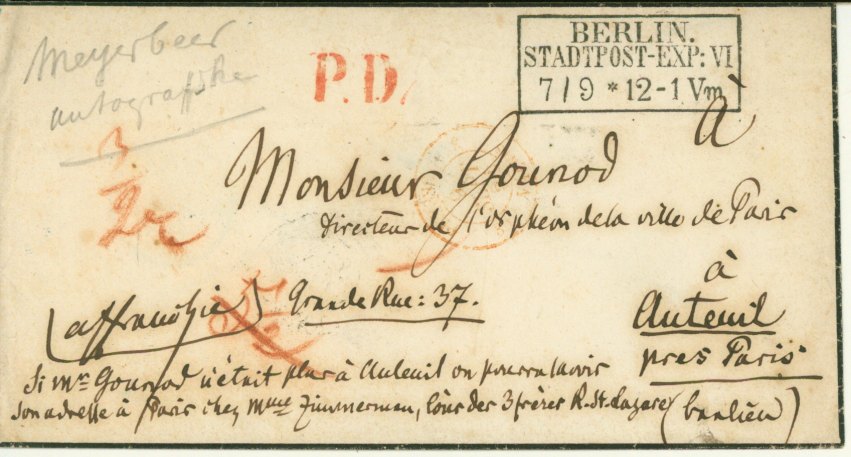 Meyerbeer
autographe
P.D.
BERLIN.
STADTPOST-EXP: VI
7/9 * 12-1 Vm
à
Monsieur Gounod
Directeur de l'orphéon de la ville de Paris
à
Grande Rue: 37.
Auteuil
(affranchie)
près Paris
(banlieu)
Si Mr Gounod n'était plus à Auteuil on pourra savoir
son adresse à Paris chez Mme Zimmerman, des 3 frères R. St. Lazare